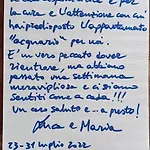 la cara e l'attenzione con cui
hai predisposto l'appartamento
"acquario" per noi.
E' un vero peccato dover
rientrare, ma abbiamo
passato una settimana
meravigliosa e ci siamo
sentiti come a casa!!!
Un caro saluto e... a presto!
e Maria
23-31 luglio 2022